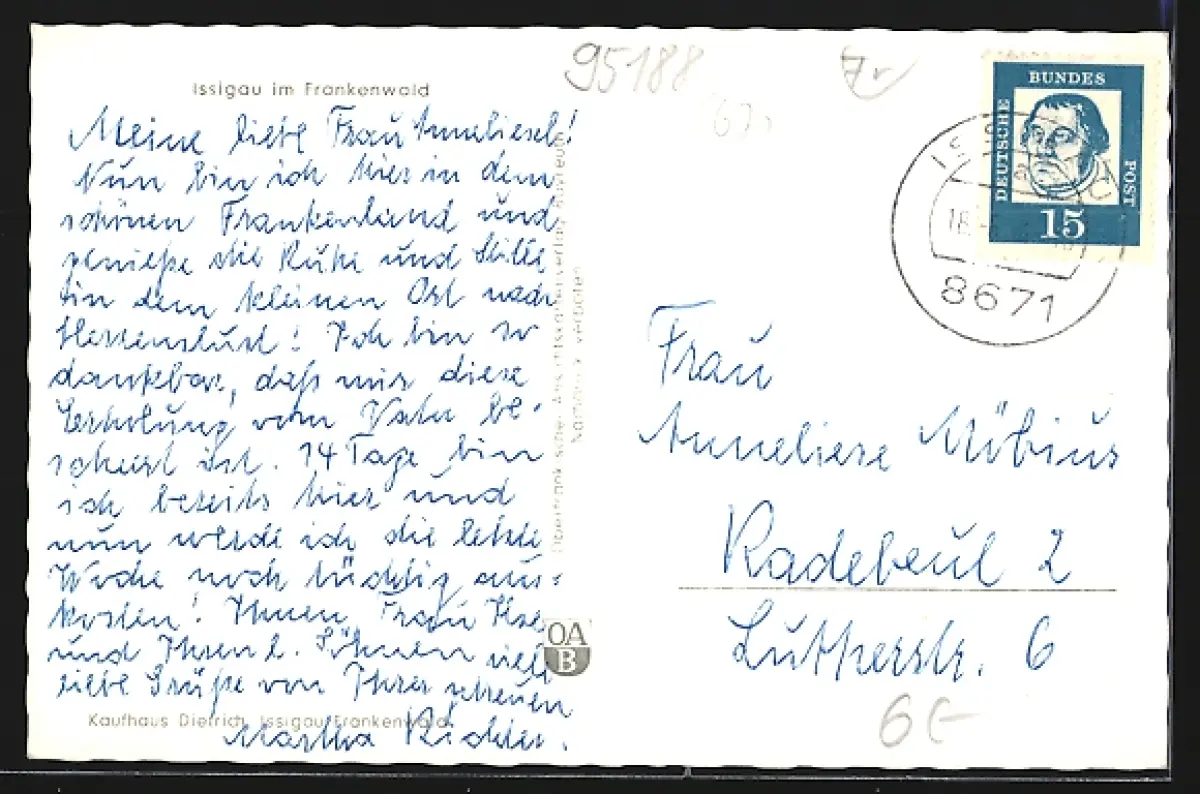 Issigau im Frankenwald
95188
7,-
Meine liebe Frau Anneliesel!
Nun bin ich hier in dem
schönen Frankenland und
genieße die Ruhe und Stille
in dem kleinen Ort nach
Herzenslust! Ich bin so
dankbar, daß mir diese
Erholung vom Vater be-
schert ist. 14 Tage bin
ich bereits hier und
nun werde ich die letzte
Woche noch tüchtig aus-
kosten! Ihnen, Frau Ilse
und Ihren l. Söhnen viele
liebe Grüße von Ihrer getreuen
Martha Richter.
Kaufhaus Dietrich, Issigau/Frankenwald
OA
B
DEUTSCHE
BUNDES
POST
15
8671
Frau
Anneliese Möbius
Radebeul 2
Lutherstr. 6